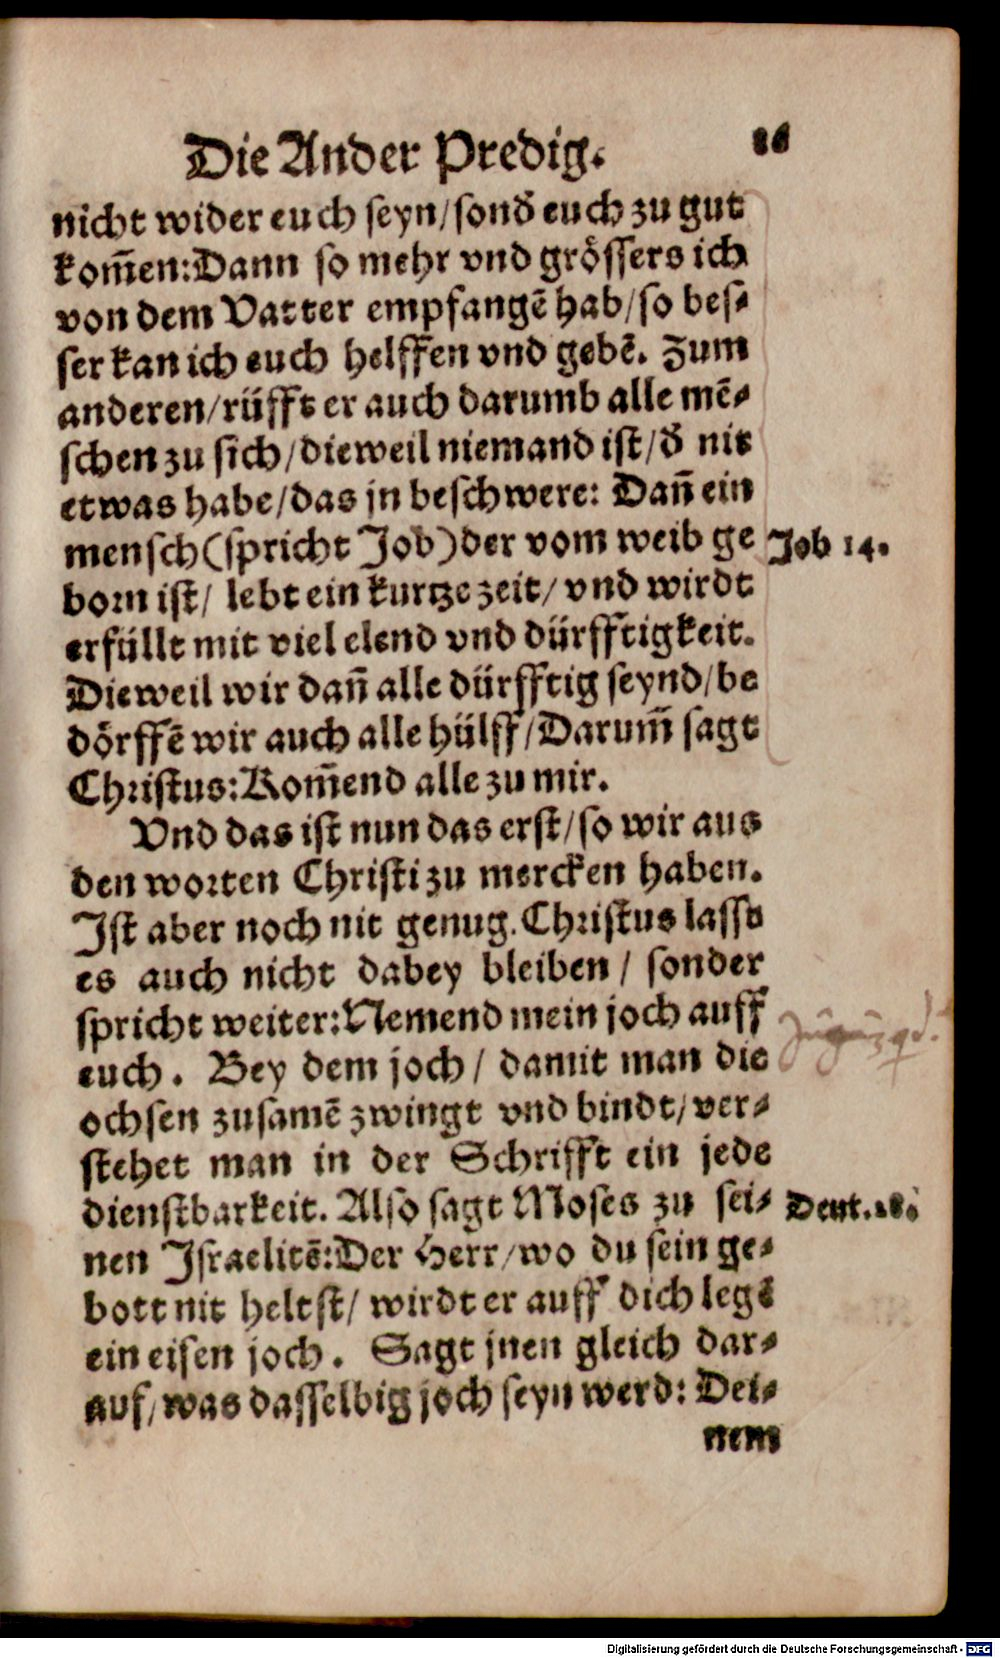 Die Ander Predig. 86
nicht wider euch seyn/sond̄ euch zu gut
kom̄en:Dann so mehr vnd grössers ich
von dem Vatter empfangē hab/so bes-
ser kan ich euch helffen vnd gebē. Zum
anderen/rüfft er auch darumb alle mē-
schen zu sich/dieweil niemand ist/d̄ nit
etwas habe/das jn beschwere: Dañ ein
mensch(spricht Job)der vom weib ge
born ist/ lebt ein kurtze zeit/ vnd wirdt
erfüllt mit viel elend vnd dürfftigkeit.
Dieweil wir dañ alle dürfftig seynd/be
dörffē wir auch alle hülff/Darum̄ sagt
Christus:Kom̄end alle zu mir.
Job 14.
Vnd das ist nun das erst/so wir aus
den worten Christi zu mercken haben.
Ist aber noch nit genug.Christus lasst
es auch nicht dabey bleiben / sonder
spricht weiter:Nemend mein joch auff
euch. Bey dem joch/ damit man die
ochsen zusamē zwingt vnd bindt/ver-
stehet man in der Schrifft ein jede
dienstbarkeit. Also sagt Moses zu sei-
nen Israelitē:Der Herr/wo du sein ge-
bott nit heltst/ wirdt er auff dich legē
ein eisen joch. Sagt jnen gleich dar-
auf/was dasselbig joch seyn werd: Dei-
Deut.28.
nem
Digitalisierung gefördert durch die Deutsche Forschungsgemeinschaft - DFG